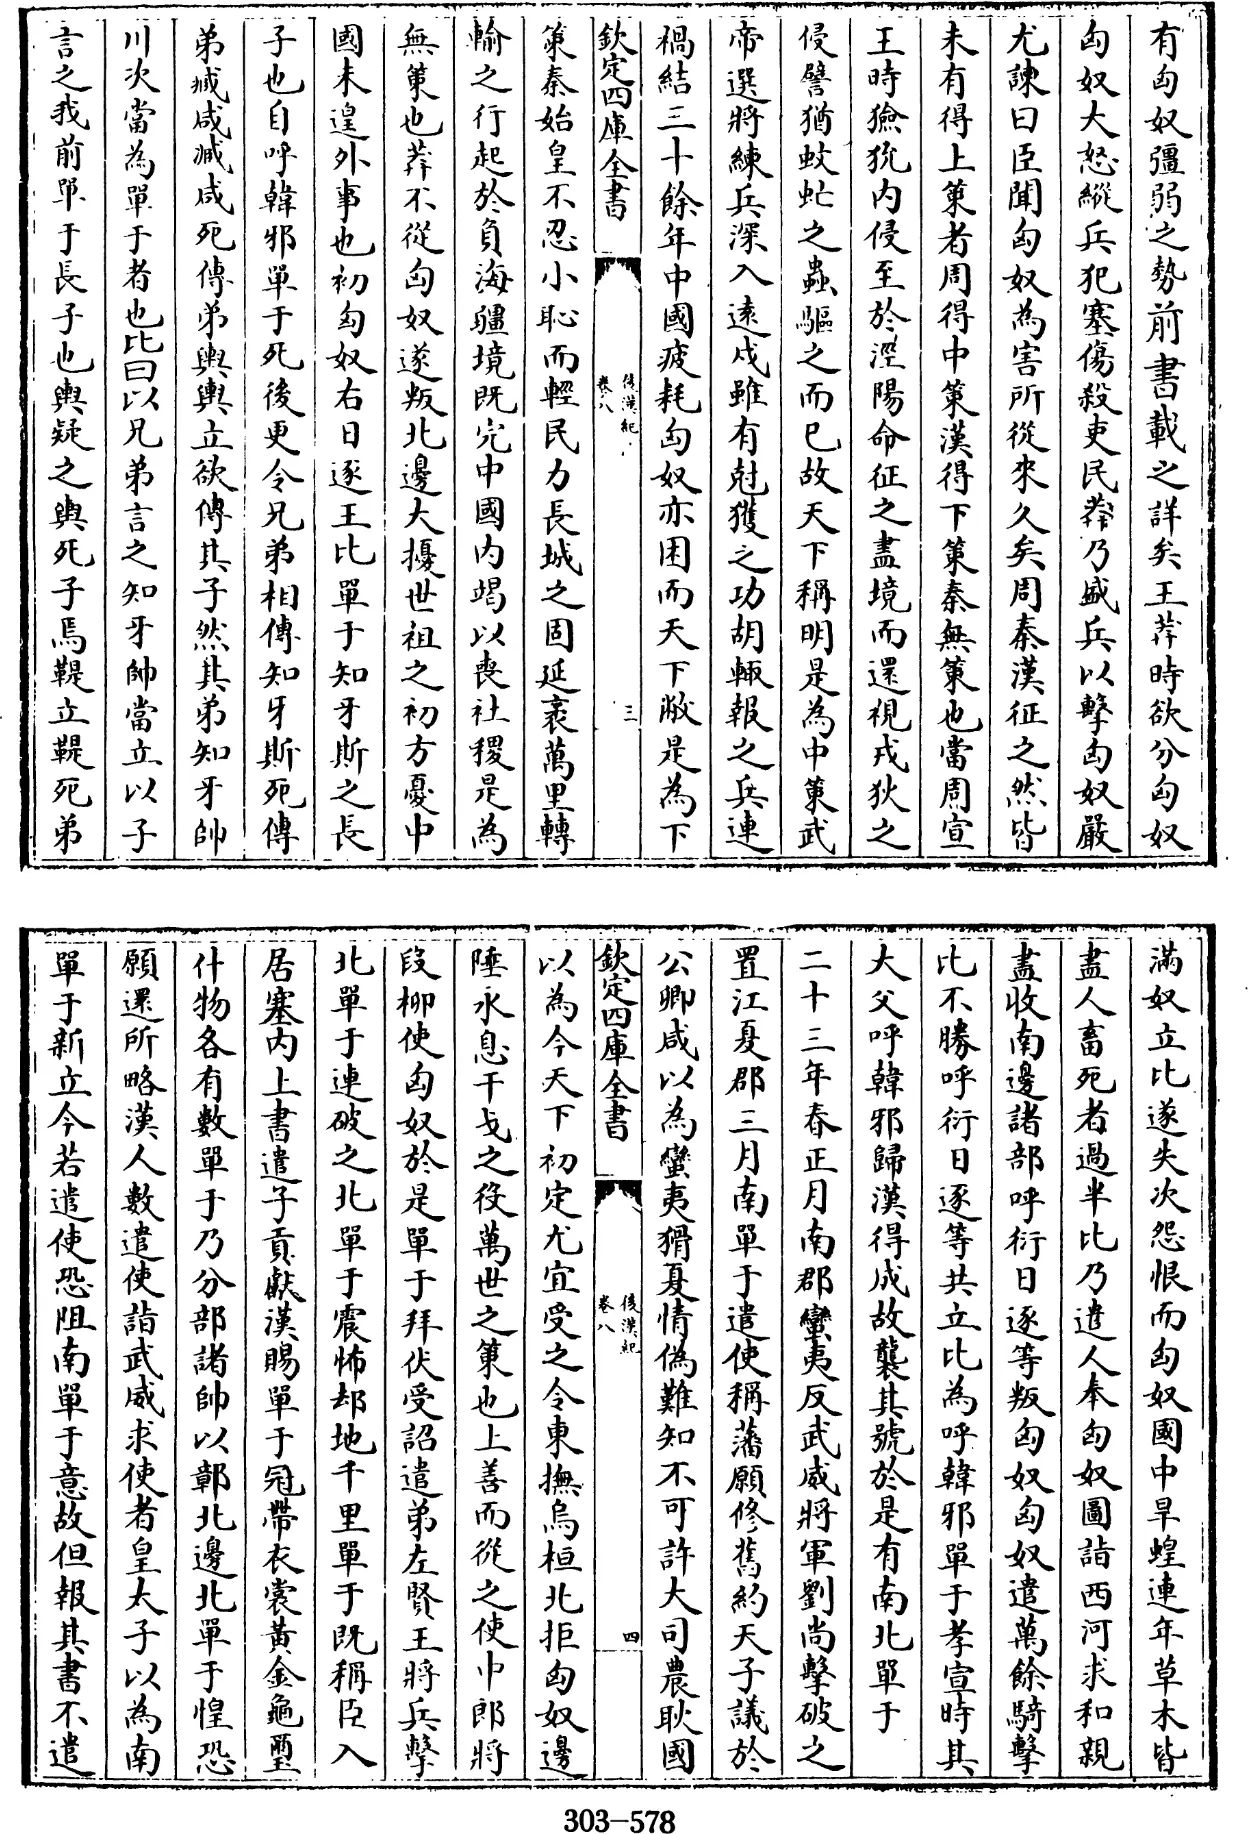 有匈奴彊弱之勢前書載之詳矣王莽時欲分匈奴
匈奴大怒縱兵犯塞傷殺吏民莽乃盛兵以擊匈奴嚴
尤諫曰臣聞匈奴為害所從來久矣周秦漢征之然皆
未有得上策者周得中策漢得下策秦無策也當周宣
王時獫狁內侵至於涇陽命征之盡境而還視戎狄之
侵譬猶蚊虻之蟲驅之而已故天下稱明是為中策武
帝選將練兵深入遠戍雖有尅獲之功胡輙報之兵連
禍結三十餘年中國疲耗匈奴亦困而天下敝是為下
欽定四庫全書
後漢紀
卷八
三
策秦始皇不忍小恥而輕民力長城之固延袤萬里轉
輸之行起於負海疆境既完中國內竭以喪社稷是為
無策也莽不從匈奴遂叛北邊大擾世祖之初方憂中
國未遑外事也初匈奴右日逐王比單于知牙斯之長
子也自呼韓邪單于死後更令兄弟相傳知牙斯死傳
弟臧咸臧咸死傳弟輿輿立欲傳其子然其弟知牙帥
川次當為單于者也比曰以兄弟言之知牙帥當立以子
言之我前單于長子也輿疑之輿死子焉鞮立鞮死弟
滿奴立比遂失次怨恨而匈奴國中旱蝗連年草木皆
盡人畜死者過半比乃遣人奉匈奴圖詣西河求和親
盡收南邊諸部呼衍日逐等叛匈奴匈奴遣萬餘騎擊
比不勝呼衍日逐等共立比為呼韓邪單于孝宣時其
大父呼韓邪歸漢得成故襲其號於是有南北單于
二十三年春正月南郡蠻夷反武威將軍劉尚擊破之
置江夏郡三月南單于遣使稱藩願修舊約天子議於
公卿咸以為蠻夷猾夏情偽難知不可許大司農耿國
欽定四庫全書
後漢紀
卷八
四
以為今天下初定尤宜受之令東撫烏桓北拒匈奴邊
陲永息干戈之役萬世之策也上善而從之使中郎將
段柳使匈奴於是單于拜伏受詔遣弟左賢王將兵擊
北單于連破之北單于震怖却地千里單于既稱臣入
居塞內上書遣子貢獻漢賜單于冠帶衣裳黃金龜璽
什物各有數單于乃分部諸帥以鄣北邊北單于惶恐
願還所略漢人數遣使詣武威求使者皇太子以為南
單于新立今若遣使恐阻南單于意故但報其書不遣
303-578